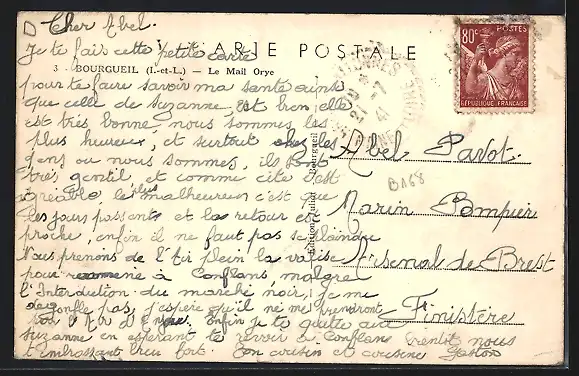 Cher Abel.
Je te fais cette petite carte
CARTE POSTALE
3 - BOURGUEIL (I.-et-L.) — Le Mail Orye
pour te faire savoir ma santé ainsi
que celle de Suzanne, est bien elle
est très bonne, nous sommes les
plus heureux, et surtout chez les
gens ou nous sommes, ils sont
très gentil, et comme cite c'est
agréable le plus malheureux c'est que
les jours passent et le retour est
proche, enfin il ne faut pas se plaindre
Nous prenons de l'Air plein la valise
pour à Conflans malgré
l'Interdiction du marché noir, je me
degonfle pas, j'espère qu'il ne me prendront
Enfin je te quitte aux
Suzanne en espérant te revoir à Conflans bientôt nous
t'embrassant bien fort. Ton cousin et cousine Gaston
80c
POSTES
REPUBLIQUE FRANÇAISE
21 -7 41
Abel Pavot.
B168
Marin Pompier
Arsenal de Brest
Finistère
Bourgueil